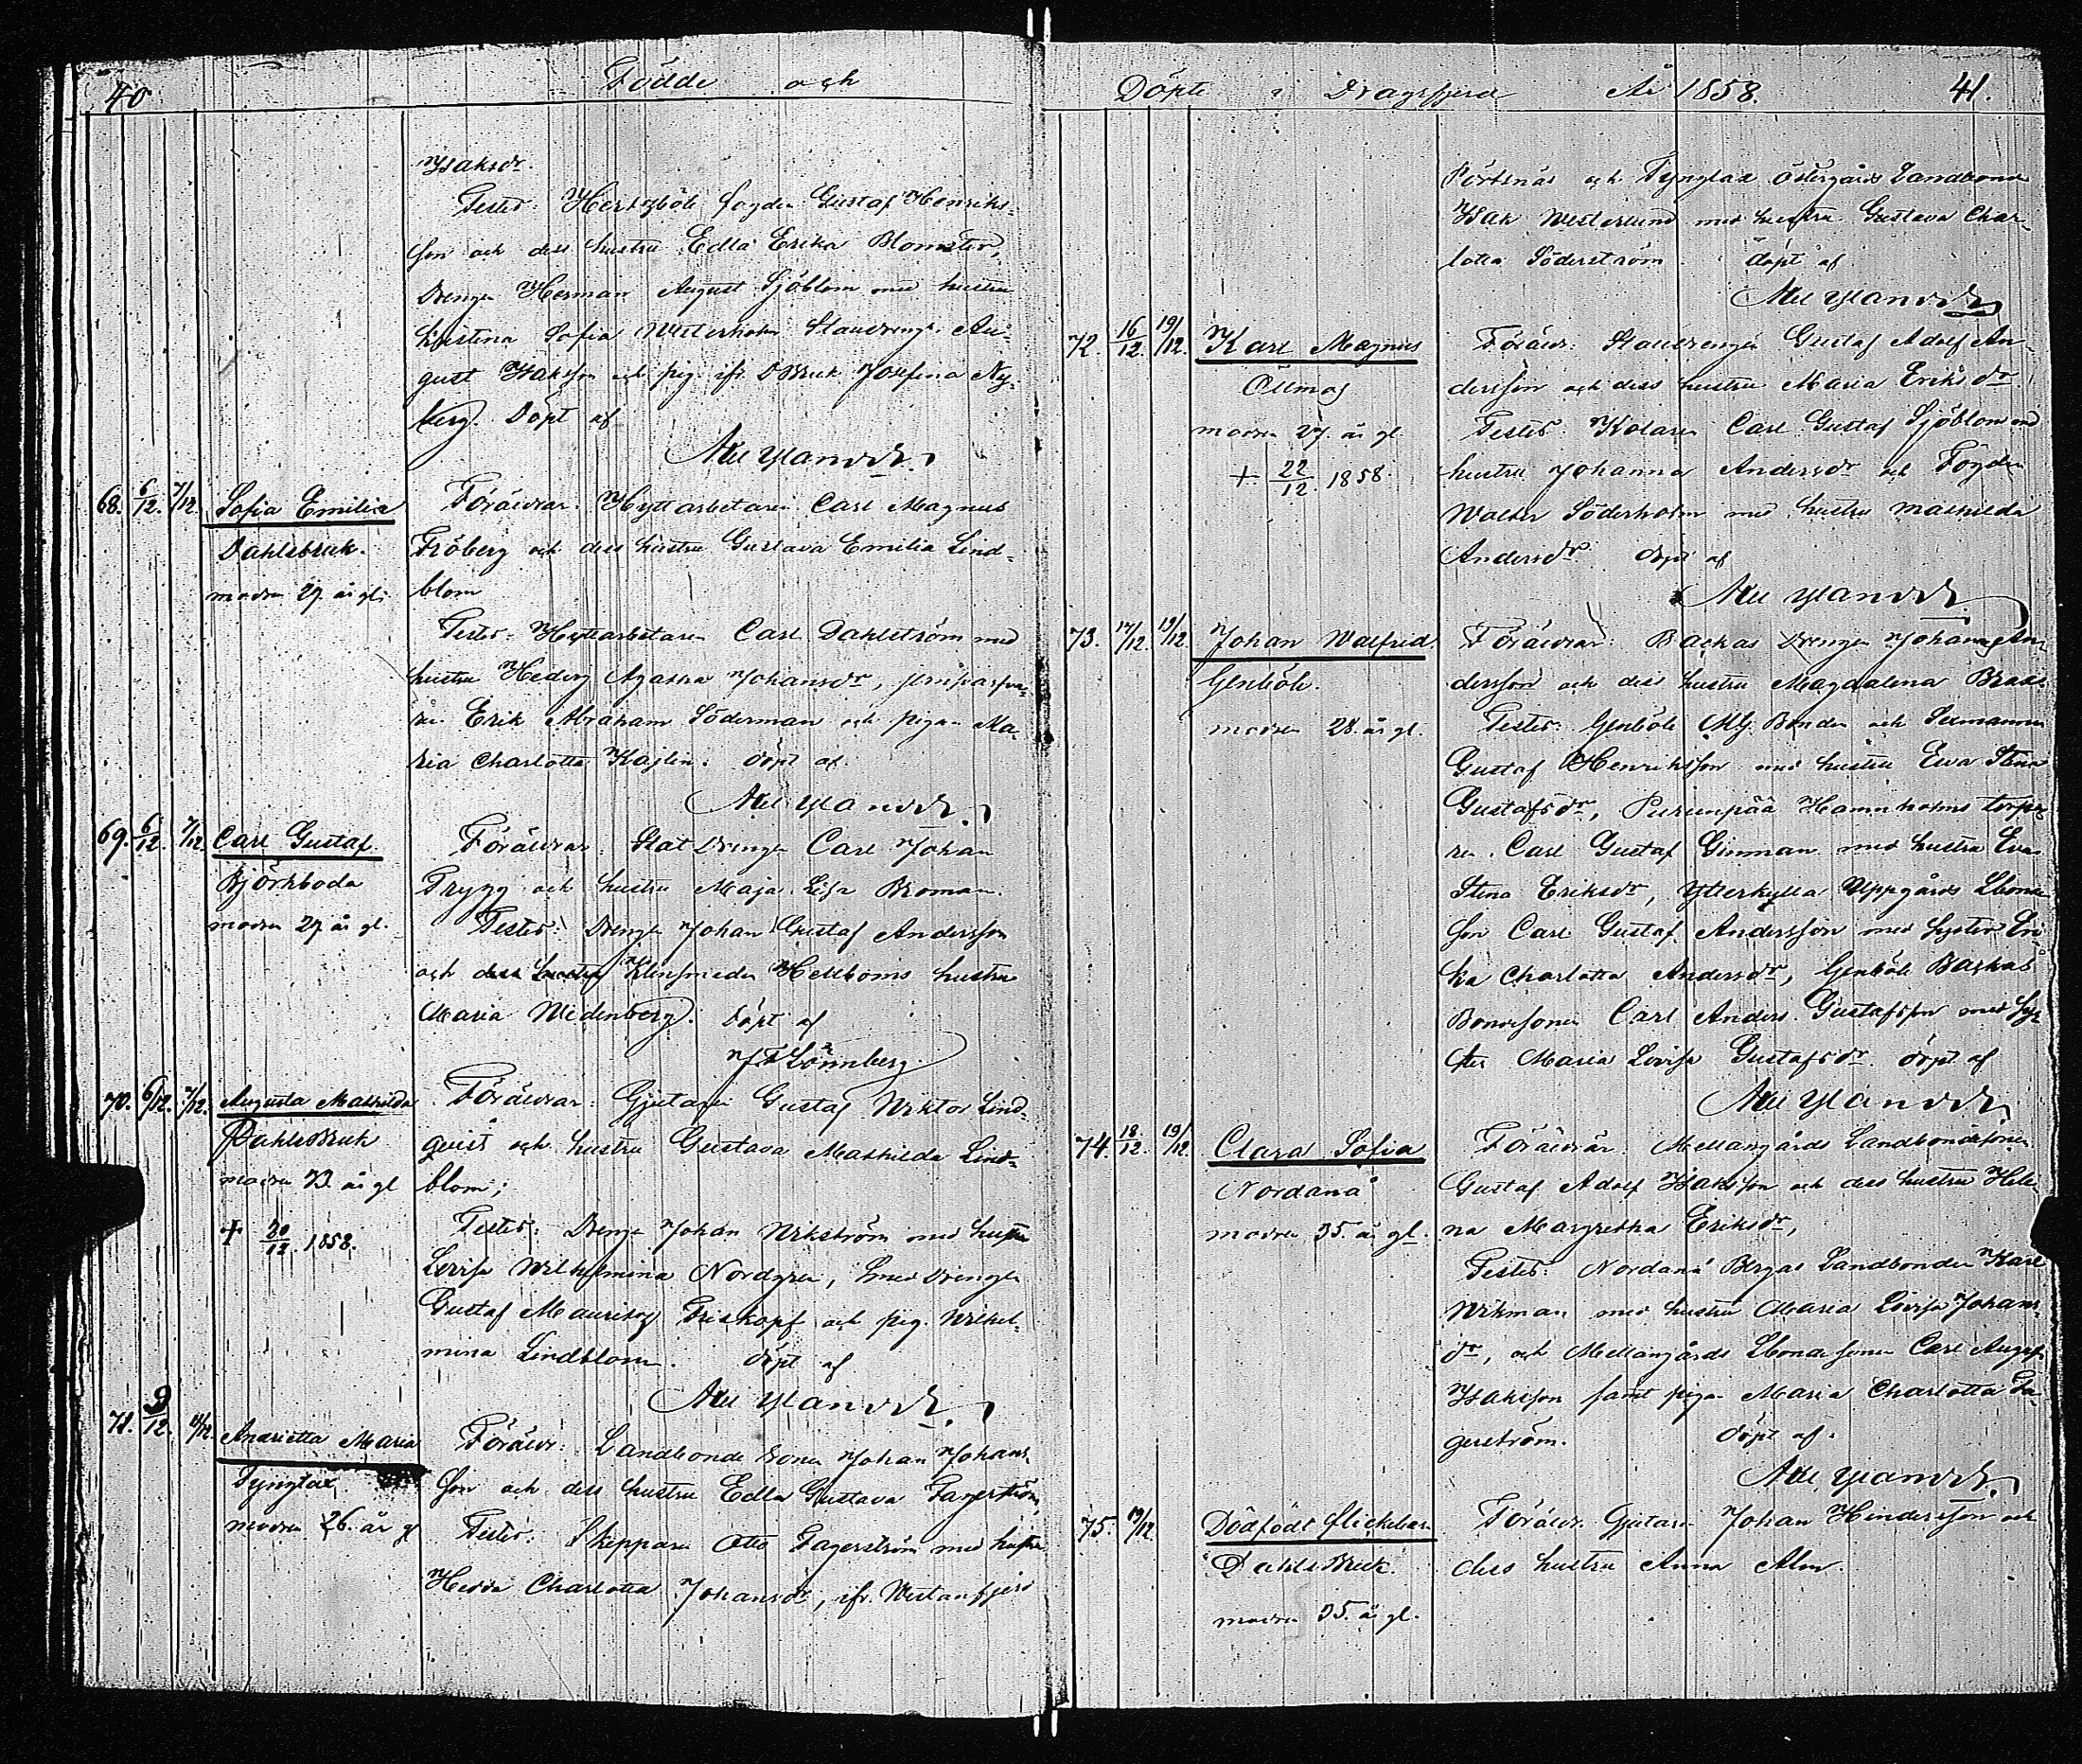 40
Födde och
Isaksdr.
Test:r Hertsböle Fogden Gustaf Henriks-
son och dess hustru Edla Erika Blomster,
Drengen Herman August Sjöblom med hustru
Kristina Sofia Westerholm Staldreng. Au-
gust Isaksson och pig. ifr. DBruk Josefina Ny-
berg. Döpt af
68. 6/12. 7/12. Sofia Emilia
Dahlsbruk.
modren 27. år gl.
Föräldrar. Hyttarbetaren Carl Magnus
Fröberg och dess hustru Gustava Emilia Lind-
blom
Test:r Hyttarbetaren Carl Dahlström med
hustru Hedvig Agatha Johansdr,
Erik Abraham Söderman och pigan Ma-
ria Charlotta Kajlin. döpt af
69. 6/12. 7/12. Carl Gustaf
Björkboda
modren 27 år gl.
Föräldrar: Stat Drengen Carl Johan
Trygg och hustru Maja Lisa Broman.
Test:r Drengen Johan Gustaf Andersson
och Klensmeden Hellboms hustru
Maria Widenberg. Döpt af
Lönnberg.
70. 6/12. 7/12. Augusta Mathilda
DahlsBruk
modren 23. år gl
+ 30/12. 1858.
Föräldrar: Gjutaren Gustaf Wiktor Lind-
quist och hustru Gustava Mathilda Lind-
blom;
Test:r Drengen Johan Wikström med hustru
Lovisa Wilhelmina Nordgren, Smed Drengen
Gustaf Mauritz Friskopf och pig. Wilhel-
mina Lindblom. döpt af
71. 9/12. Andrietta Maria
Tynglax
modren 26. år gl
Föräldr: Landbonde Sonen Johan Johans-
son och dess hustru Edla Gustava Fagerström,
Test:r Skepparen Otto Fagerström med hustru
Hedda Charlotta Johansdr, ifr. Westanfjerd
Döpte i Dragsfjerd År 1858. 41.
Pörtsnäs och Tynglax Östergårds Landbonden
Isak Westerlund med hustru Gustava Char-
lotta Söderström döpt af
72. 16/12. 19/12. Karl Magnus
Ölmos
modren 27. år gl.
+ 22/12. 1858.
Föräldr: Staldrengen Gustaf Adolf An-
dersson och dess hustru Maria Eriksdr.
Test:r Kolaren Carl Gustaf Sjöblom med
hustru Johanna Andersdr och Fogden
Walter Söderholm med hustru Mathilda
Andersdr. döpt af
73. 17/12. 19/12. Johan Walfrid.
Genböle.
modren 28. år gl.
Föräldrar: Backas Drengen Johan An-
dersson och dess hustru Magdalena Brask
Test:r Genböle MG. Bonden och
Gustaf Henriksson med hustru Ewa Stina
Gustafsdr, Purunpää Hamnholms torpa-
ren Carl Gustaf Ginman med hustru Eva
Stina Eriksdr, Ytterkulla Uppgårds Lbonde
son Carl Gustaf Andersson med syster Eri-
ka Charlotta Andersdr, Genböle Backas
Bondesonen Carl Anders Gustafsson med sys-
ter Maria Lovisa Gustafsdr. döpt af
74. 18/12. 19/12. Clara Sofia
Nordanå
modren 35. år gl.
Föräldrar: Mellangårds Landbondesonen
Gustaf Adolf Isaksson och dess hustru Hele-
na Margretha Eriksdr,
Test:r Nordanå Bergas Landbonden Karl
Wikman med hustru Maria Lovisa Johans-
dr, och Mellangårds Lbonde sonen Carl August
Isaksson samt pigan Maria Charlotta Fa-
gerström. döpt af
75. 19/12. Dödfödt flickebarn
DahlsBruk.
modren 35. år gl.
Föräldr. Gjutaren Johan Hindersson och
dess hustru Anna Alm.